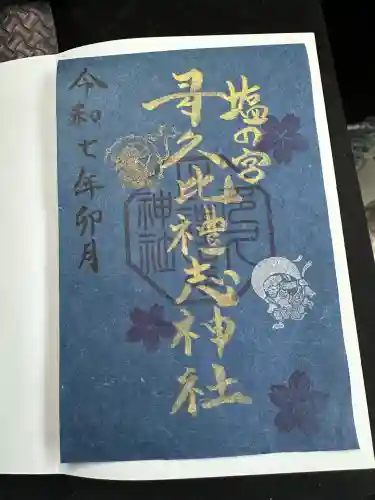 塩の宮
弖久比禮志神社
令和七年卯月
神社